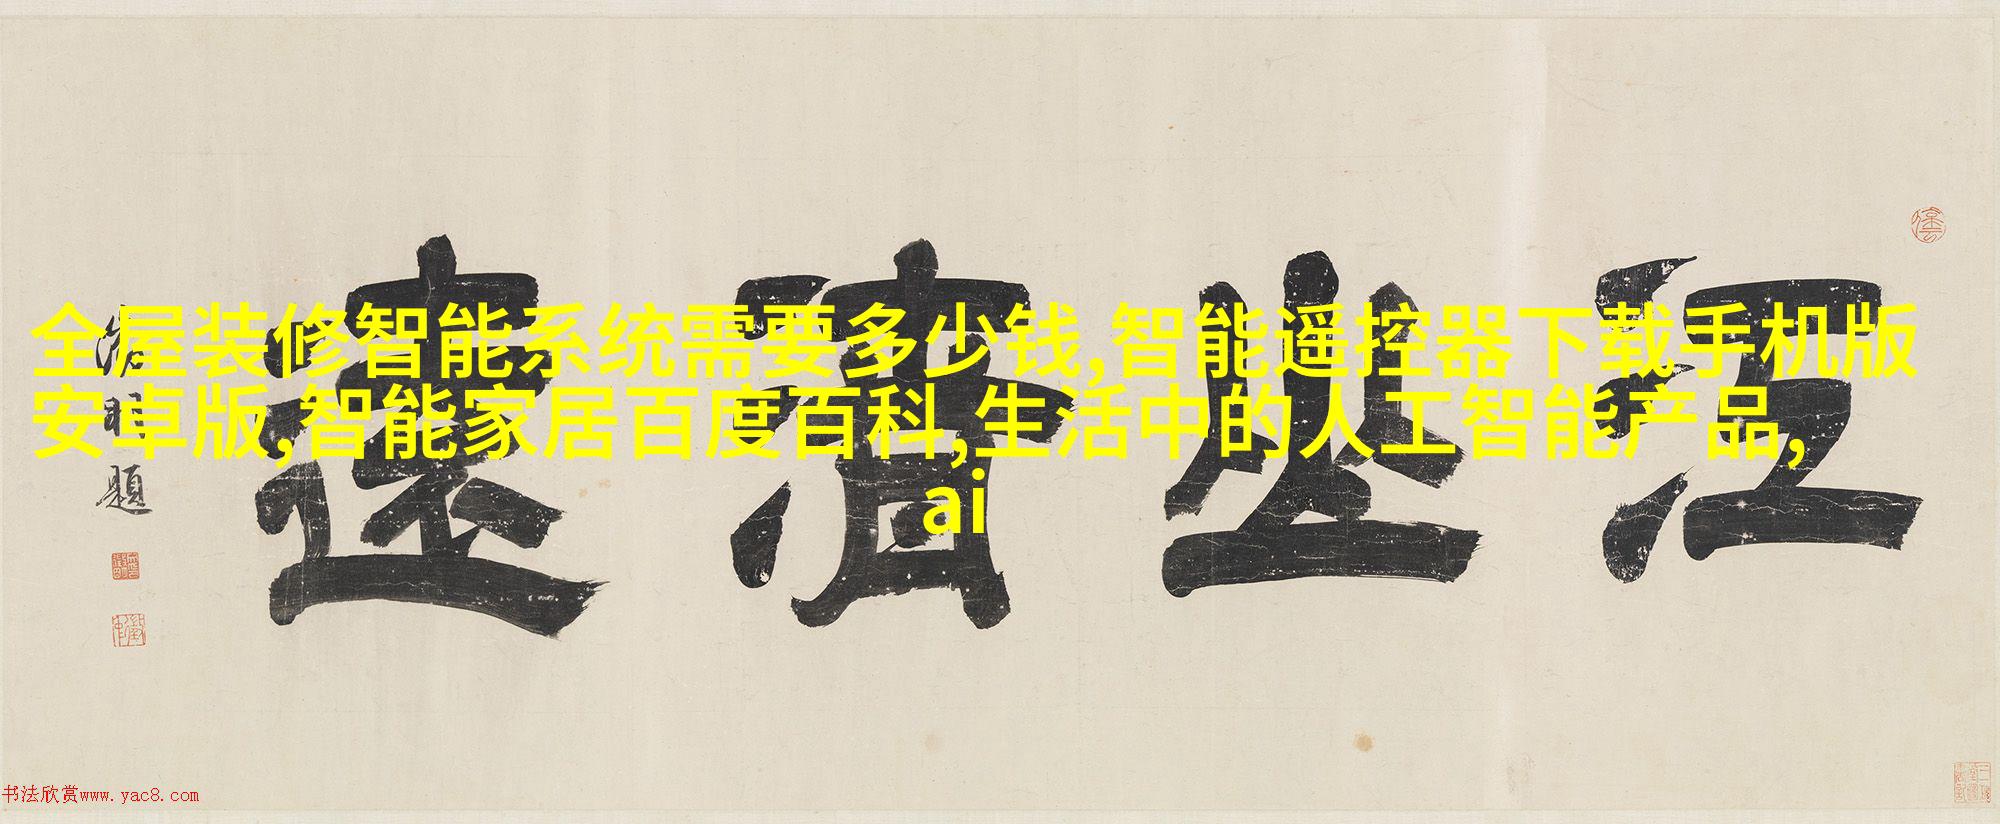 全屋装修智能系统需要多少钱,智能遥控器下载手机版
安卓版,智能家居百度百科,生活中的人工智能产品,
ai
江山清遠
浩明題
书法欣赏www.yac8.com